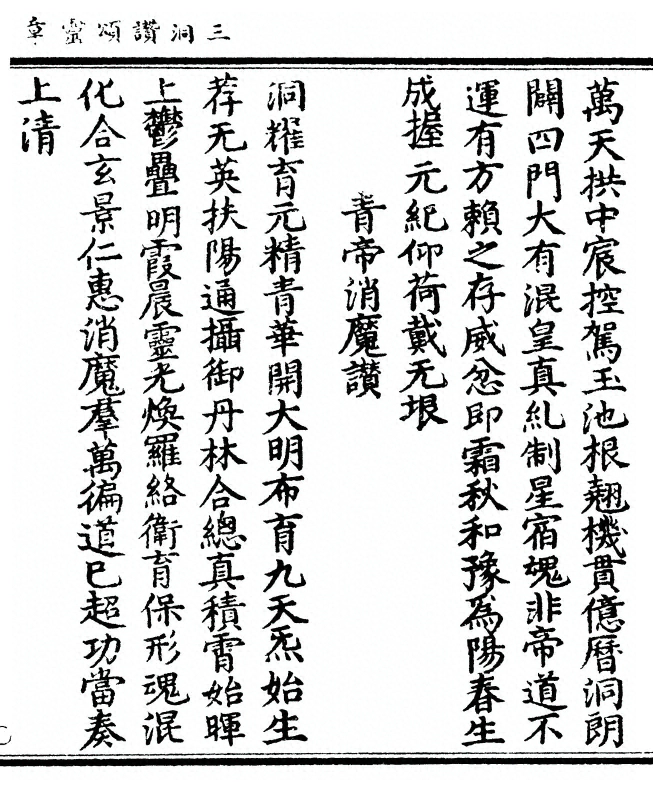 三洞讚頌靈章
萬天拱中宸控駕玉池根翹機貫億曆洞朗
闢四門大有混皇真糺制星宿魂非帝道不
運有方賴之存威忿即霜秋和豫為陽春生
成握元紀仰荷戴无垠
青帝消魔讚
洞耀育元精青華開大明布育九天炁始生
荐无英扶陽通攝御丹林合總真積霄始暉
上鬱壘明霞晨靈光煥羅絡衛育保形魂混
化合玄景仁惠消魔羣萬徧道已超功當奏
上清